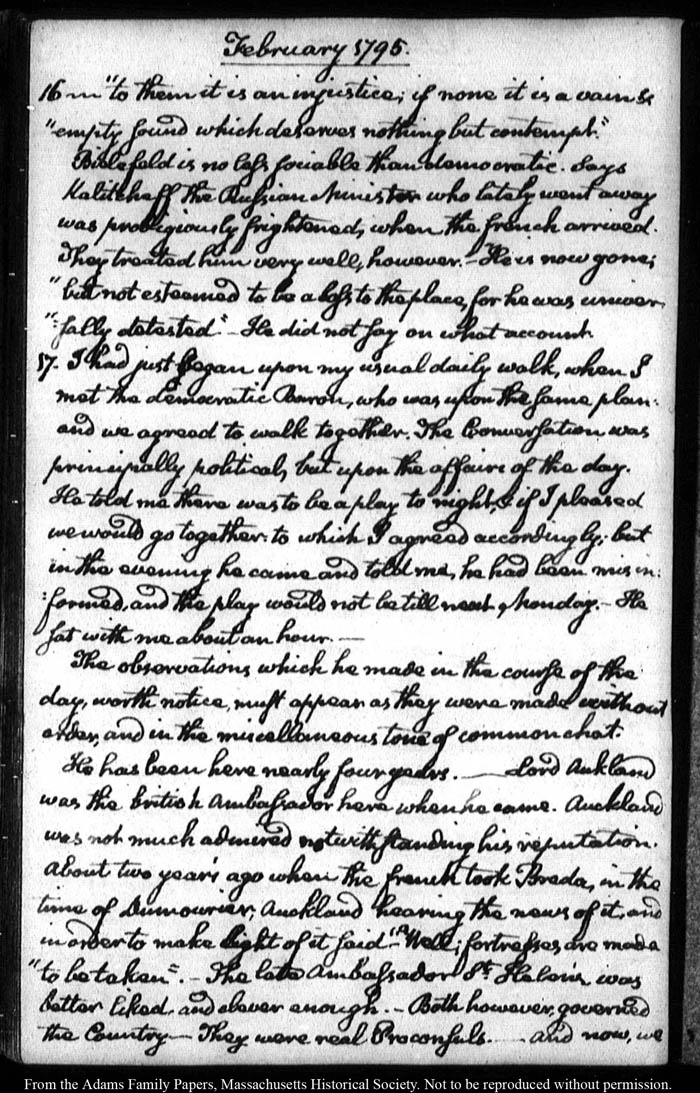 February 1795.
16 "to them it is an injustice; if none it is a vain &
"empty sound which deserves nothing but contempt."
Bielefeld is no less sociable than democratic. Says
Kalitcheff the Russian Minister who lately went away
was prodigiously frightened, when the french arrived.
They treated him very well, however.—He is now gone;
"but not esteemed to be a loss to the place, for he was univer
"sally detested"—He did not say on what account.
17. I had just began upon my usual daily walk, when I
met the democratic Baron, who was upon the same plan:
and we agreed to walk together. The Conversation was
principally political, but upon the affairs of the day.
He told me there was to be a play to night, & if I pleased
we would go together: to which I agreed accordingly; but
in the evening he came and told me, he had been mis in:
:formed, and the play would not be till next Monday.—He
sat with me about an hour.—
The observations which he made in the course of the
day, worth notice, must appear as they were made without
order, and in the miscellaneous tone of common chat.
He has been here nearly four years.—Lord Aukland
was the british Ambassador here when he came. Auckland
was not much admired notwithstanding his reputation.
About two years ago when the french took Breda, in the
time of Dumourier, Auckland hearing the news of it, and
in order to make light of it said "Well; fortresses are made
"to be taken".—The late Ambassador St. Helens, was
better liked, and clever enough.—Both however, governed
the Country—They were real Proconsuls.—and now, we
From the Adams Family Papers, Massachusetts Historical Society. Not to be reproduced without permission.